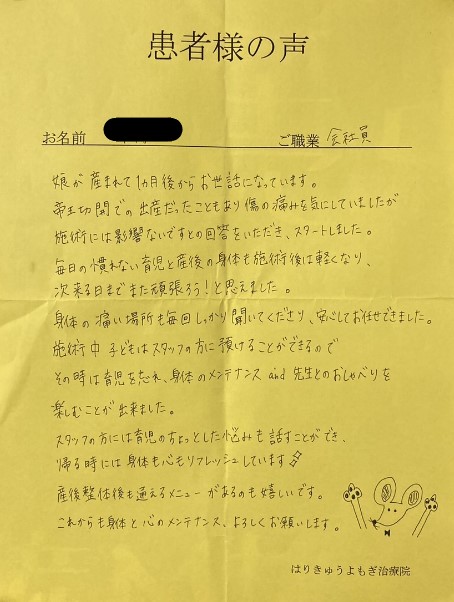 患者様の声
お名前 ご職業 会社員
娘が産まれて1ヵ月後からお世話になっています。
帝王切開での出産だったこともあり傷の痛みを気にしていましたが
施術には影響ないですとの回答をいただき、スタートしました。
毎日の慣れない育児と産後の身体も施術後は軽くなり、
次来る日までまた頑張ろう!と思えました。
身体の痛い場所も毎回しっかり聞いてくださり、安心してお任せできました。
施術中 子どもはスタッフの方に預けることができるので
その時は育児を忘れ、身体のメンテナンス and 先生とのおしゃべりを
楽しむことが出来ました。
スタッフの方には育児のちょっとした悩みも話すことができ、
帰る時には身体も心もリフレッシュしています
産後整体後も通えるメニューがあるのも嬉しいです。
これからも身体と心のメンテナンス、よろしくお願いします。
はりきゅうよもぎ治療院